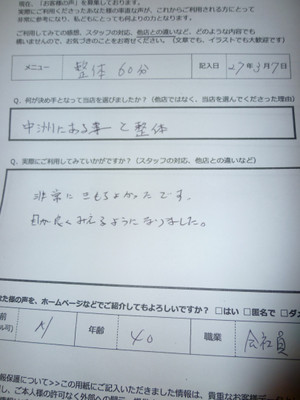 現在、「お客様の声」を募集しております。
実際にご利用くださったあなた様の率直な声が、これからご利用される方にとって
非常に参考になり、私どもにとっても何よりの力となります。
ご利用してみての感想、スタッフの対応、他店との違いなど、どのような内容でも
構いませんので、お気づきのことをお寄せください。（文章でも、イラストでも大歓迎です）
メニュー 整体 60分 記入日 27年3月7日
Q. 何が決め手となって当店を選びましたか？（他店ではなく、当店を選んでくださった理由）
中洲にある事と整体
Q. 実際にご利用してみていかがですか？（スタッフの対応、他店との違いなど）
非常にきもちよかったです。
目が良くみえるようになりました。
た様の声を、ホームページなどでご紹介してもよろしいですか？ □はい □匿名で □ダ
前 N 年齢 40 職業 会社員
報保護について>>この用紙にご記入いただきました情報は、貴重なお客様デー
し、ご本人様の許可なく外部への